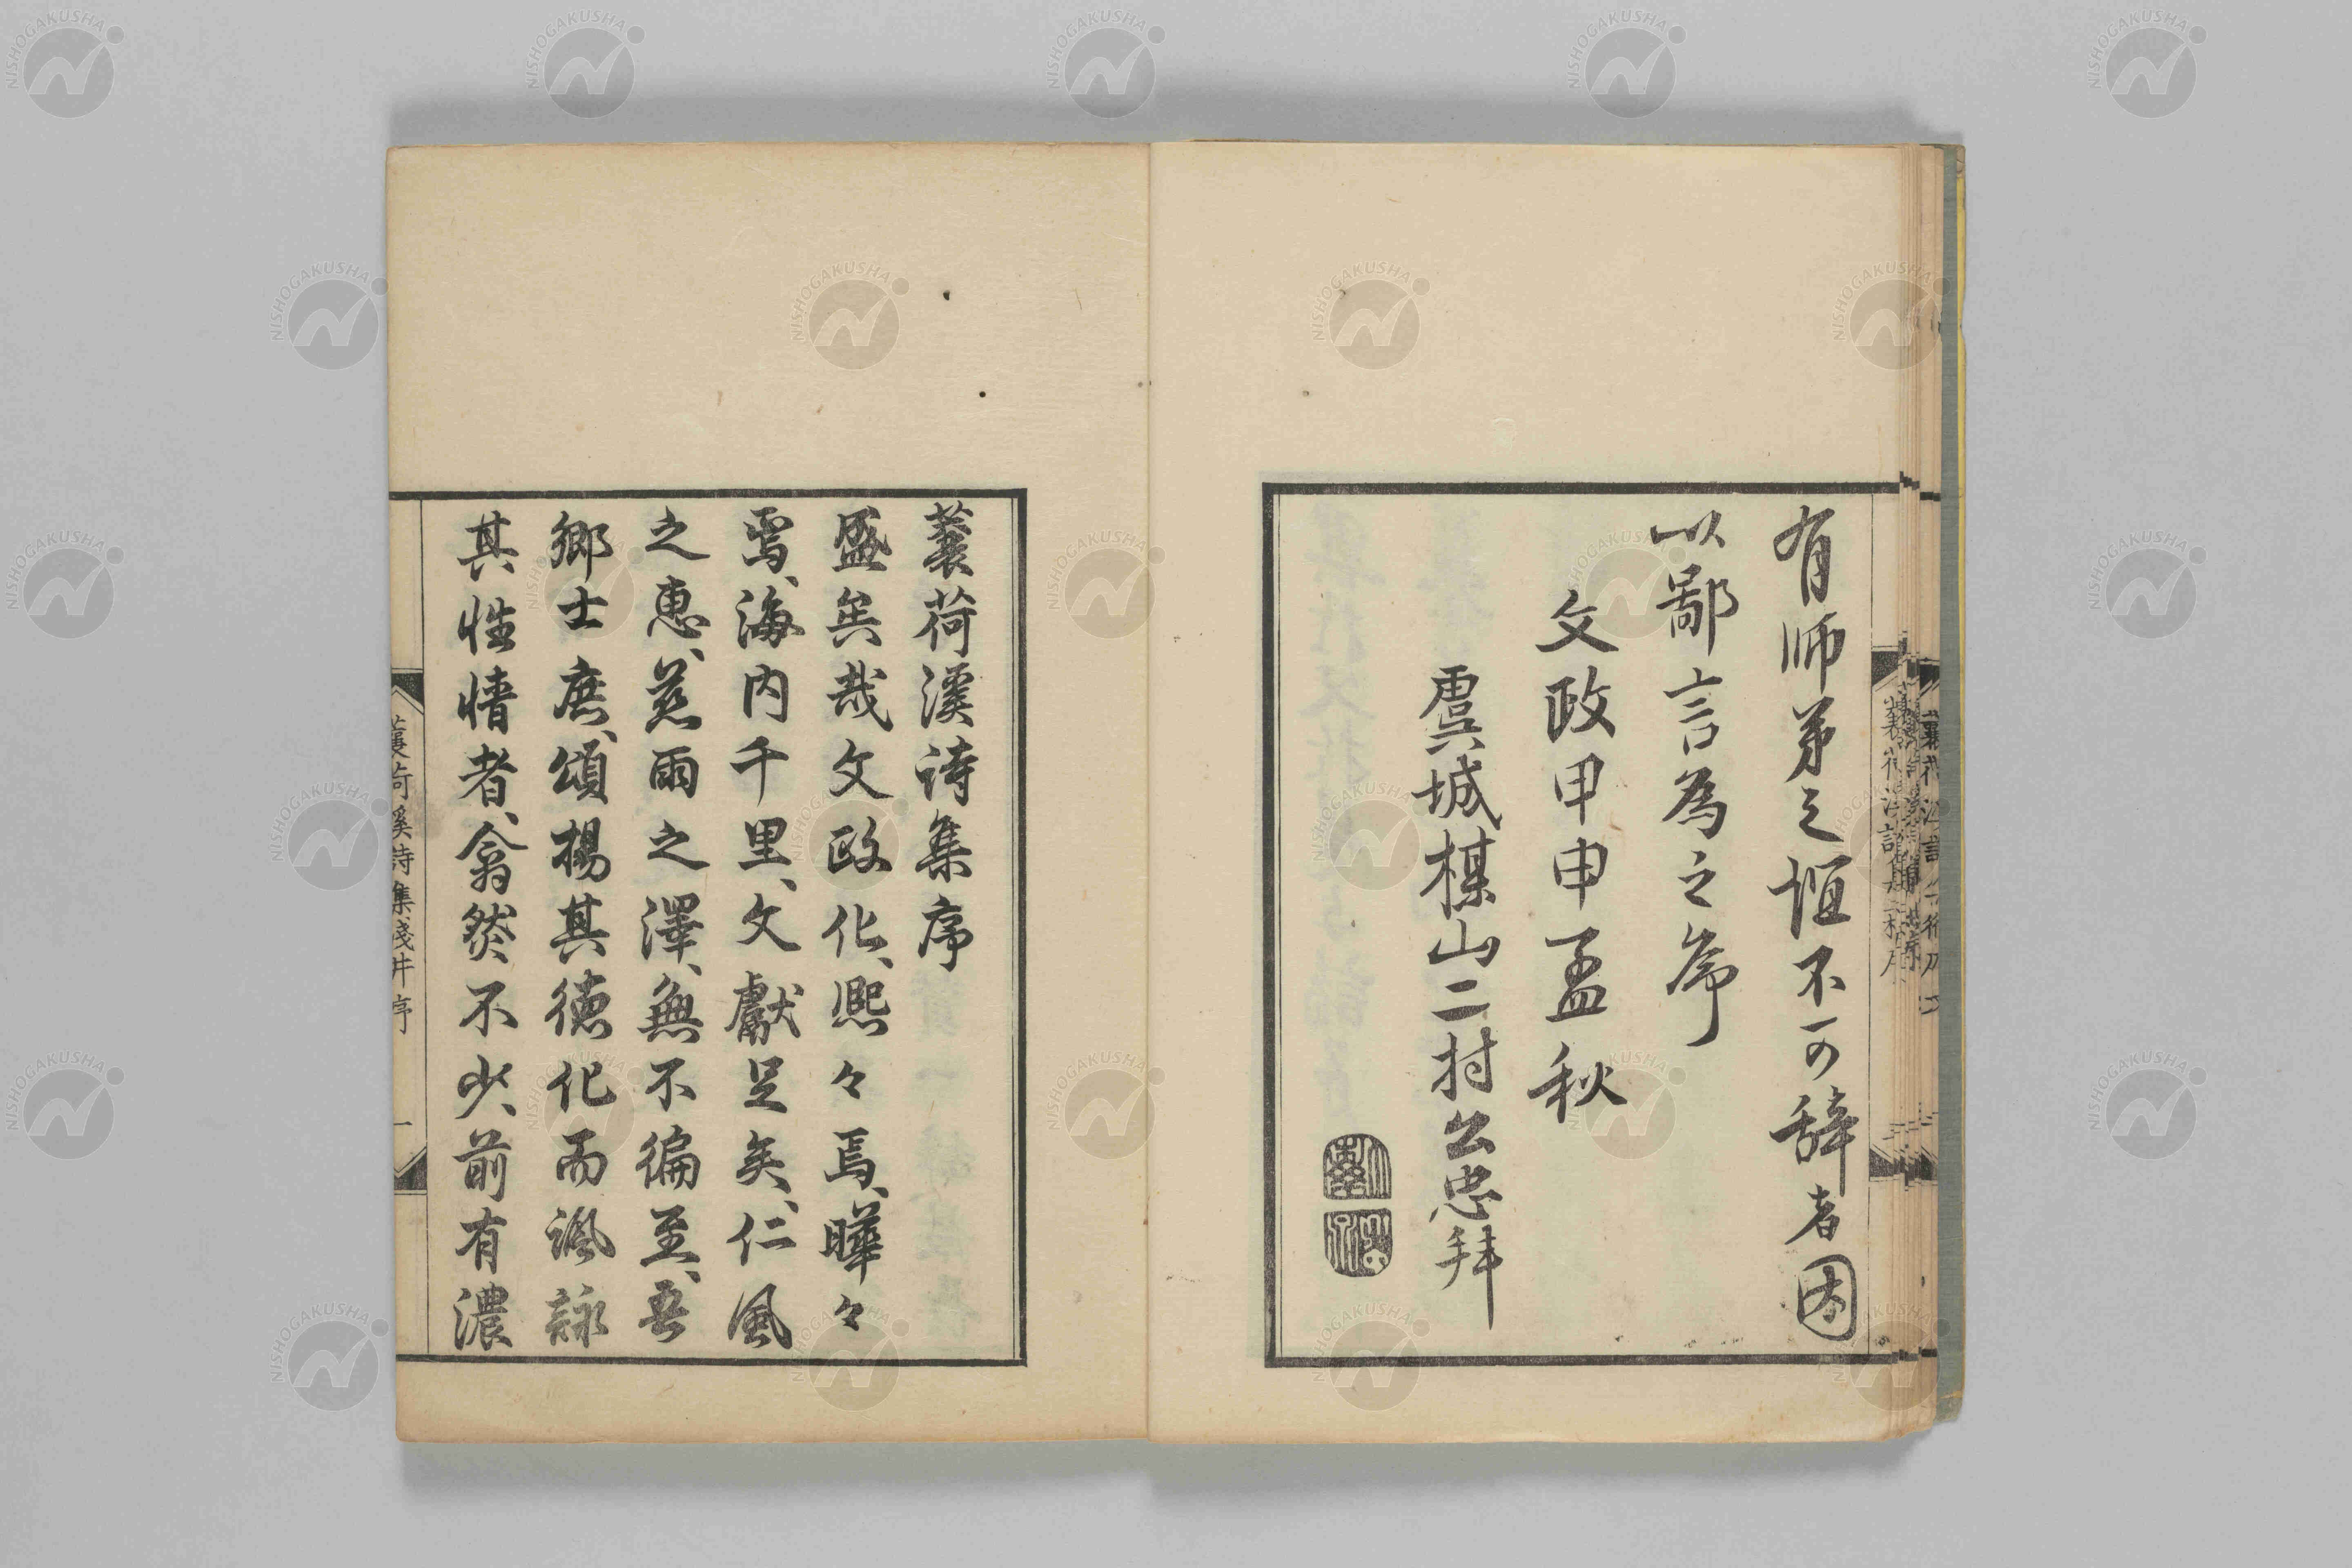 有師弟之恒不可辞者因
以鄙言為之序
文政甲申孟秋
虞城楳山二村公忠拜
蘘荷溪詩集序
盛矣哉文政化、熙々焉、曄々
焉、海内千里、文獻足矣、仁風
之惠、慈雨之澤、無不徧至、吾
鄉士庶、頌揚其德化而諷詠
其性情者、翕然不少、前有濃
蘘荷溪詩集淺井序 一
NISHOGAKUSHA